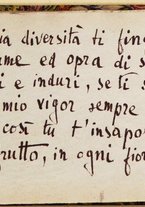 ia diversità ti fing
ume ed opra di s
i e induri, se ti s
mio vigor sempre
così tu t'insapo
rutto, in ogni fior